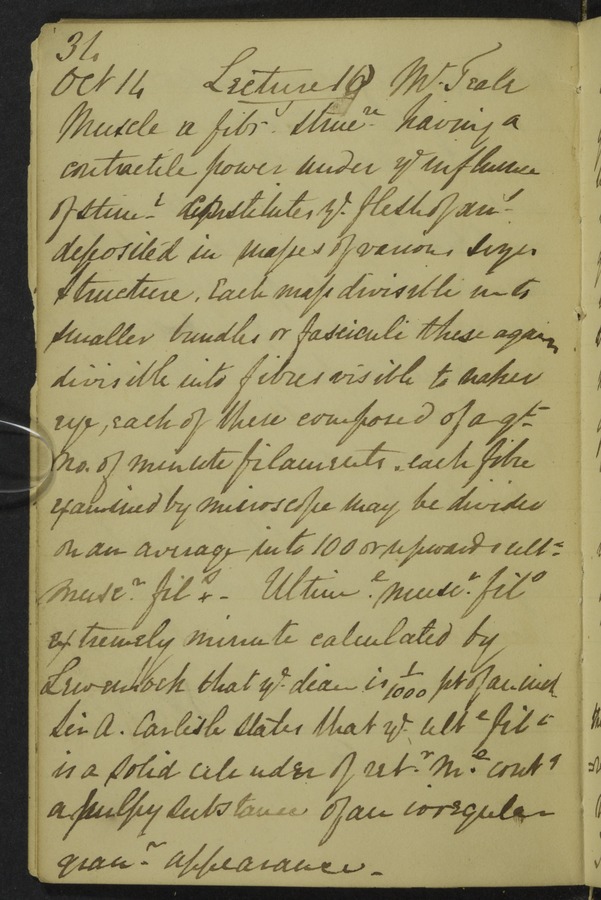 31.
Oct 14 Lecture 10 Mr Teale
Muscle a fibr. struc.re having a
contractile power under ye influence
of stim.i constitutes ye flesh of an.l
deposited in masses of various sizes
structure. Each mass divisible into
smaller bundles or fasciculi these again
divisible into fibres visible to naked
eye, each of these composed of a gt
no. of minute filaments. each fibre
examined by microscope may be divided
on an average into 100 or upwards ult.e
musc.r fil.s - Ultim.e musc.r fil.s
extremely minute calculated by
Lewenhock that ye diam is 1/1000 pt of an inch
Sir A. Carlisle states that ye ult.e fil.t
is a solid cylinder of ret.r M.e cont.g
a pulpy substance of an irregular
gran.r appearance.